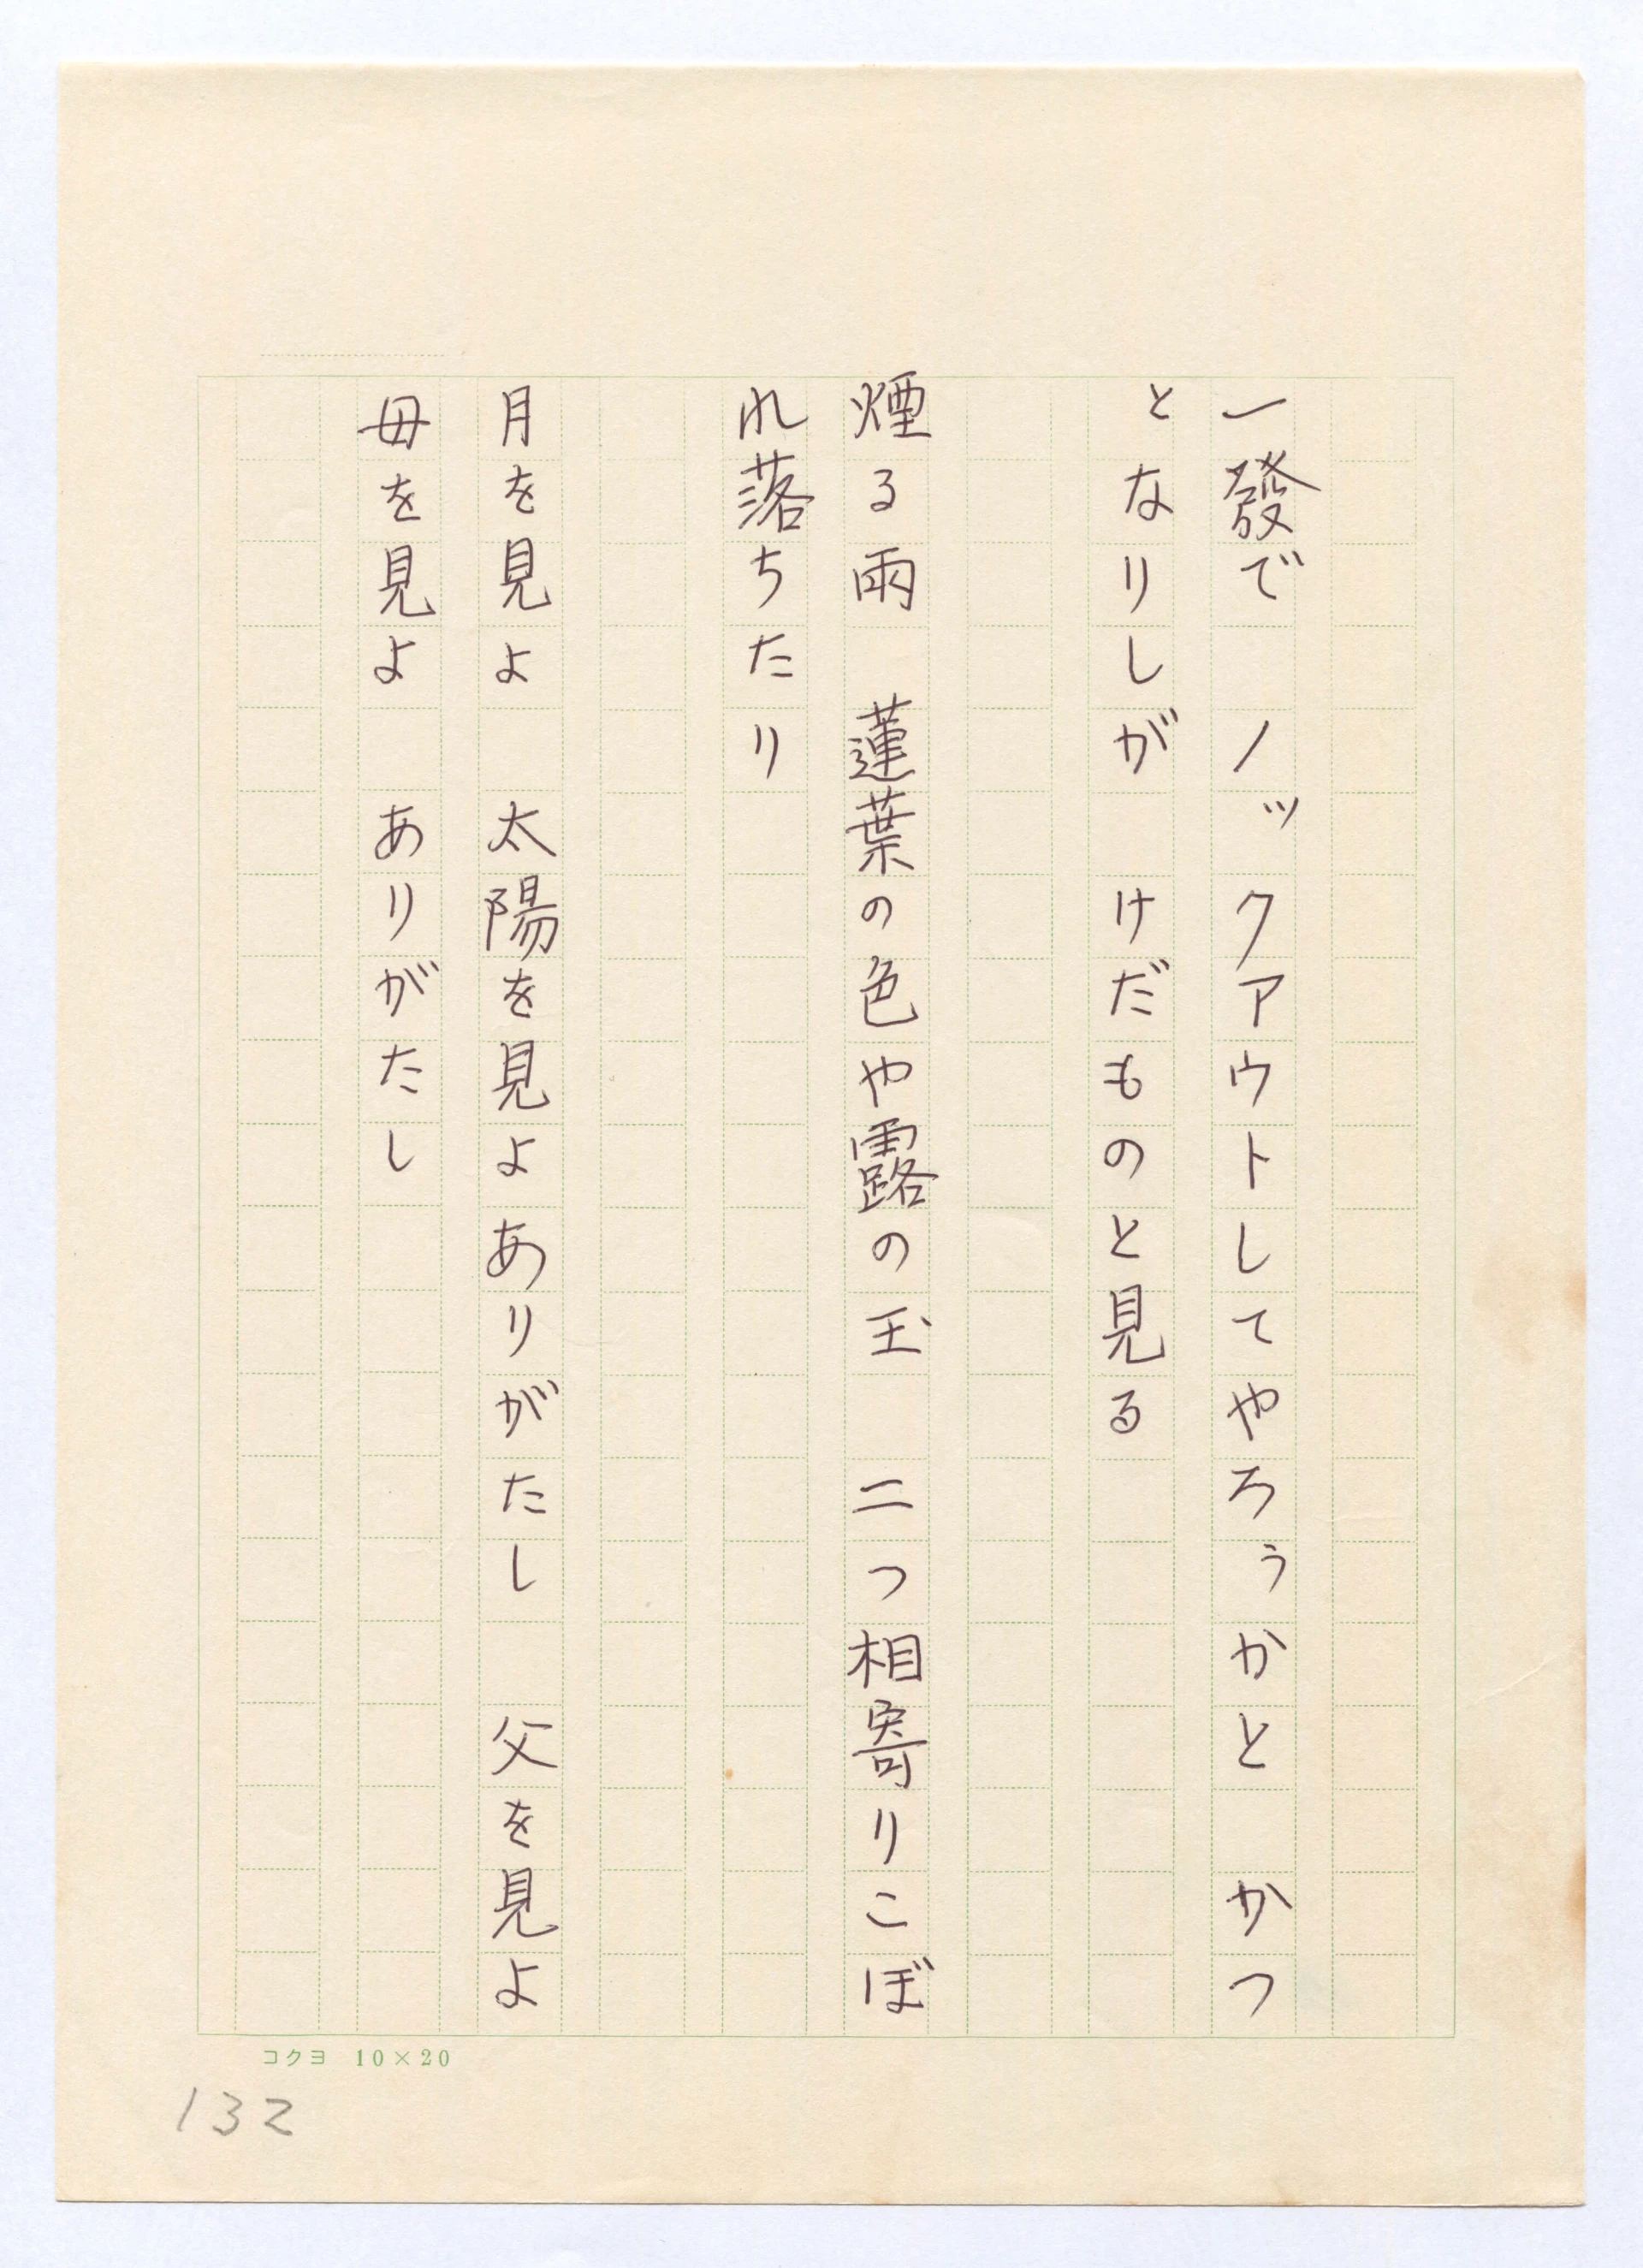 一發で　ノックアウトしてやろうかと　かつ
となりしが　けだものと見る
煙る雨　蓮葉の色や露の玉　二つ相寄りこぼ
れ落ちたり
月を見よ　太陽を見よありがたし　父を見よ
母を見よ　ありがたし
コクヨ 10×20
132